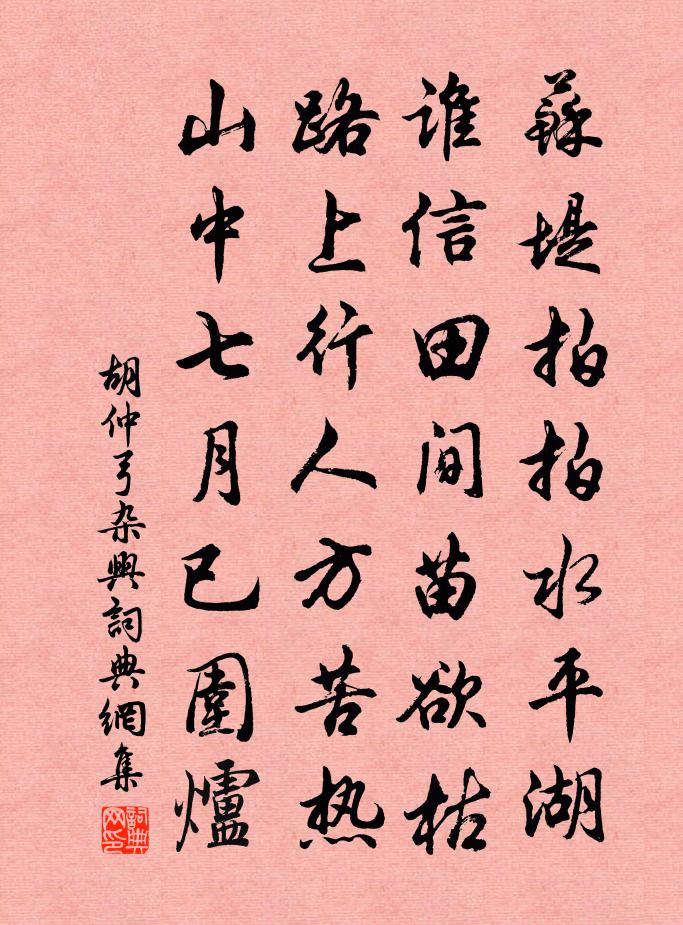 蘇堤拍拍水平湖
誰信田間苗欲枯
路上行人方苦热
山中七月已圍爐
胡仲弓杂興詞典網集
詞典网印